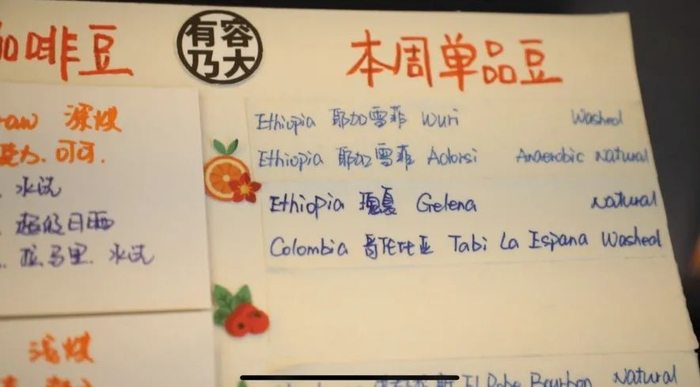 咖啡豆
有容
乃大
本周单品豆
深烘
可可.
水洗
日晒
水洗
浅烘
Ethiopia 耶加雪菲 Wuri Washed
Ethiopia 耶加雪菲 Adorsi Anaerobic Natural
Ethiopia 瑰夏 Gelena Natural
Colombia 哥伦比亚 Tabi La Espana Washed
Bourbon Natural